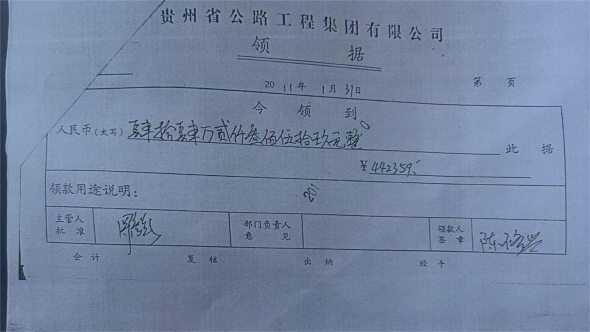 贵州省公路工程集团有限公司
领 据
2011年1月31日 第 页
今领到
人民币(大写) 肆拾肆万贰仟叁佰伍拾玖元整 此据
¥442359.
领款用途说明:
主管人批准 部门负责人意见 领款人签章
会计 复核 出纳 经手